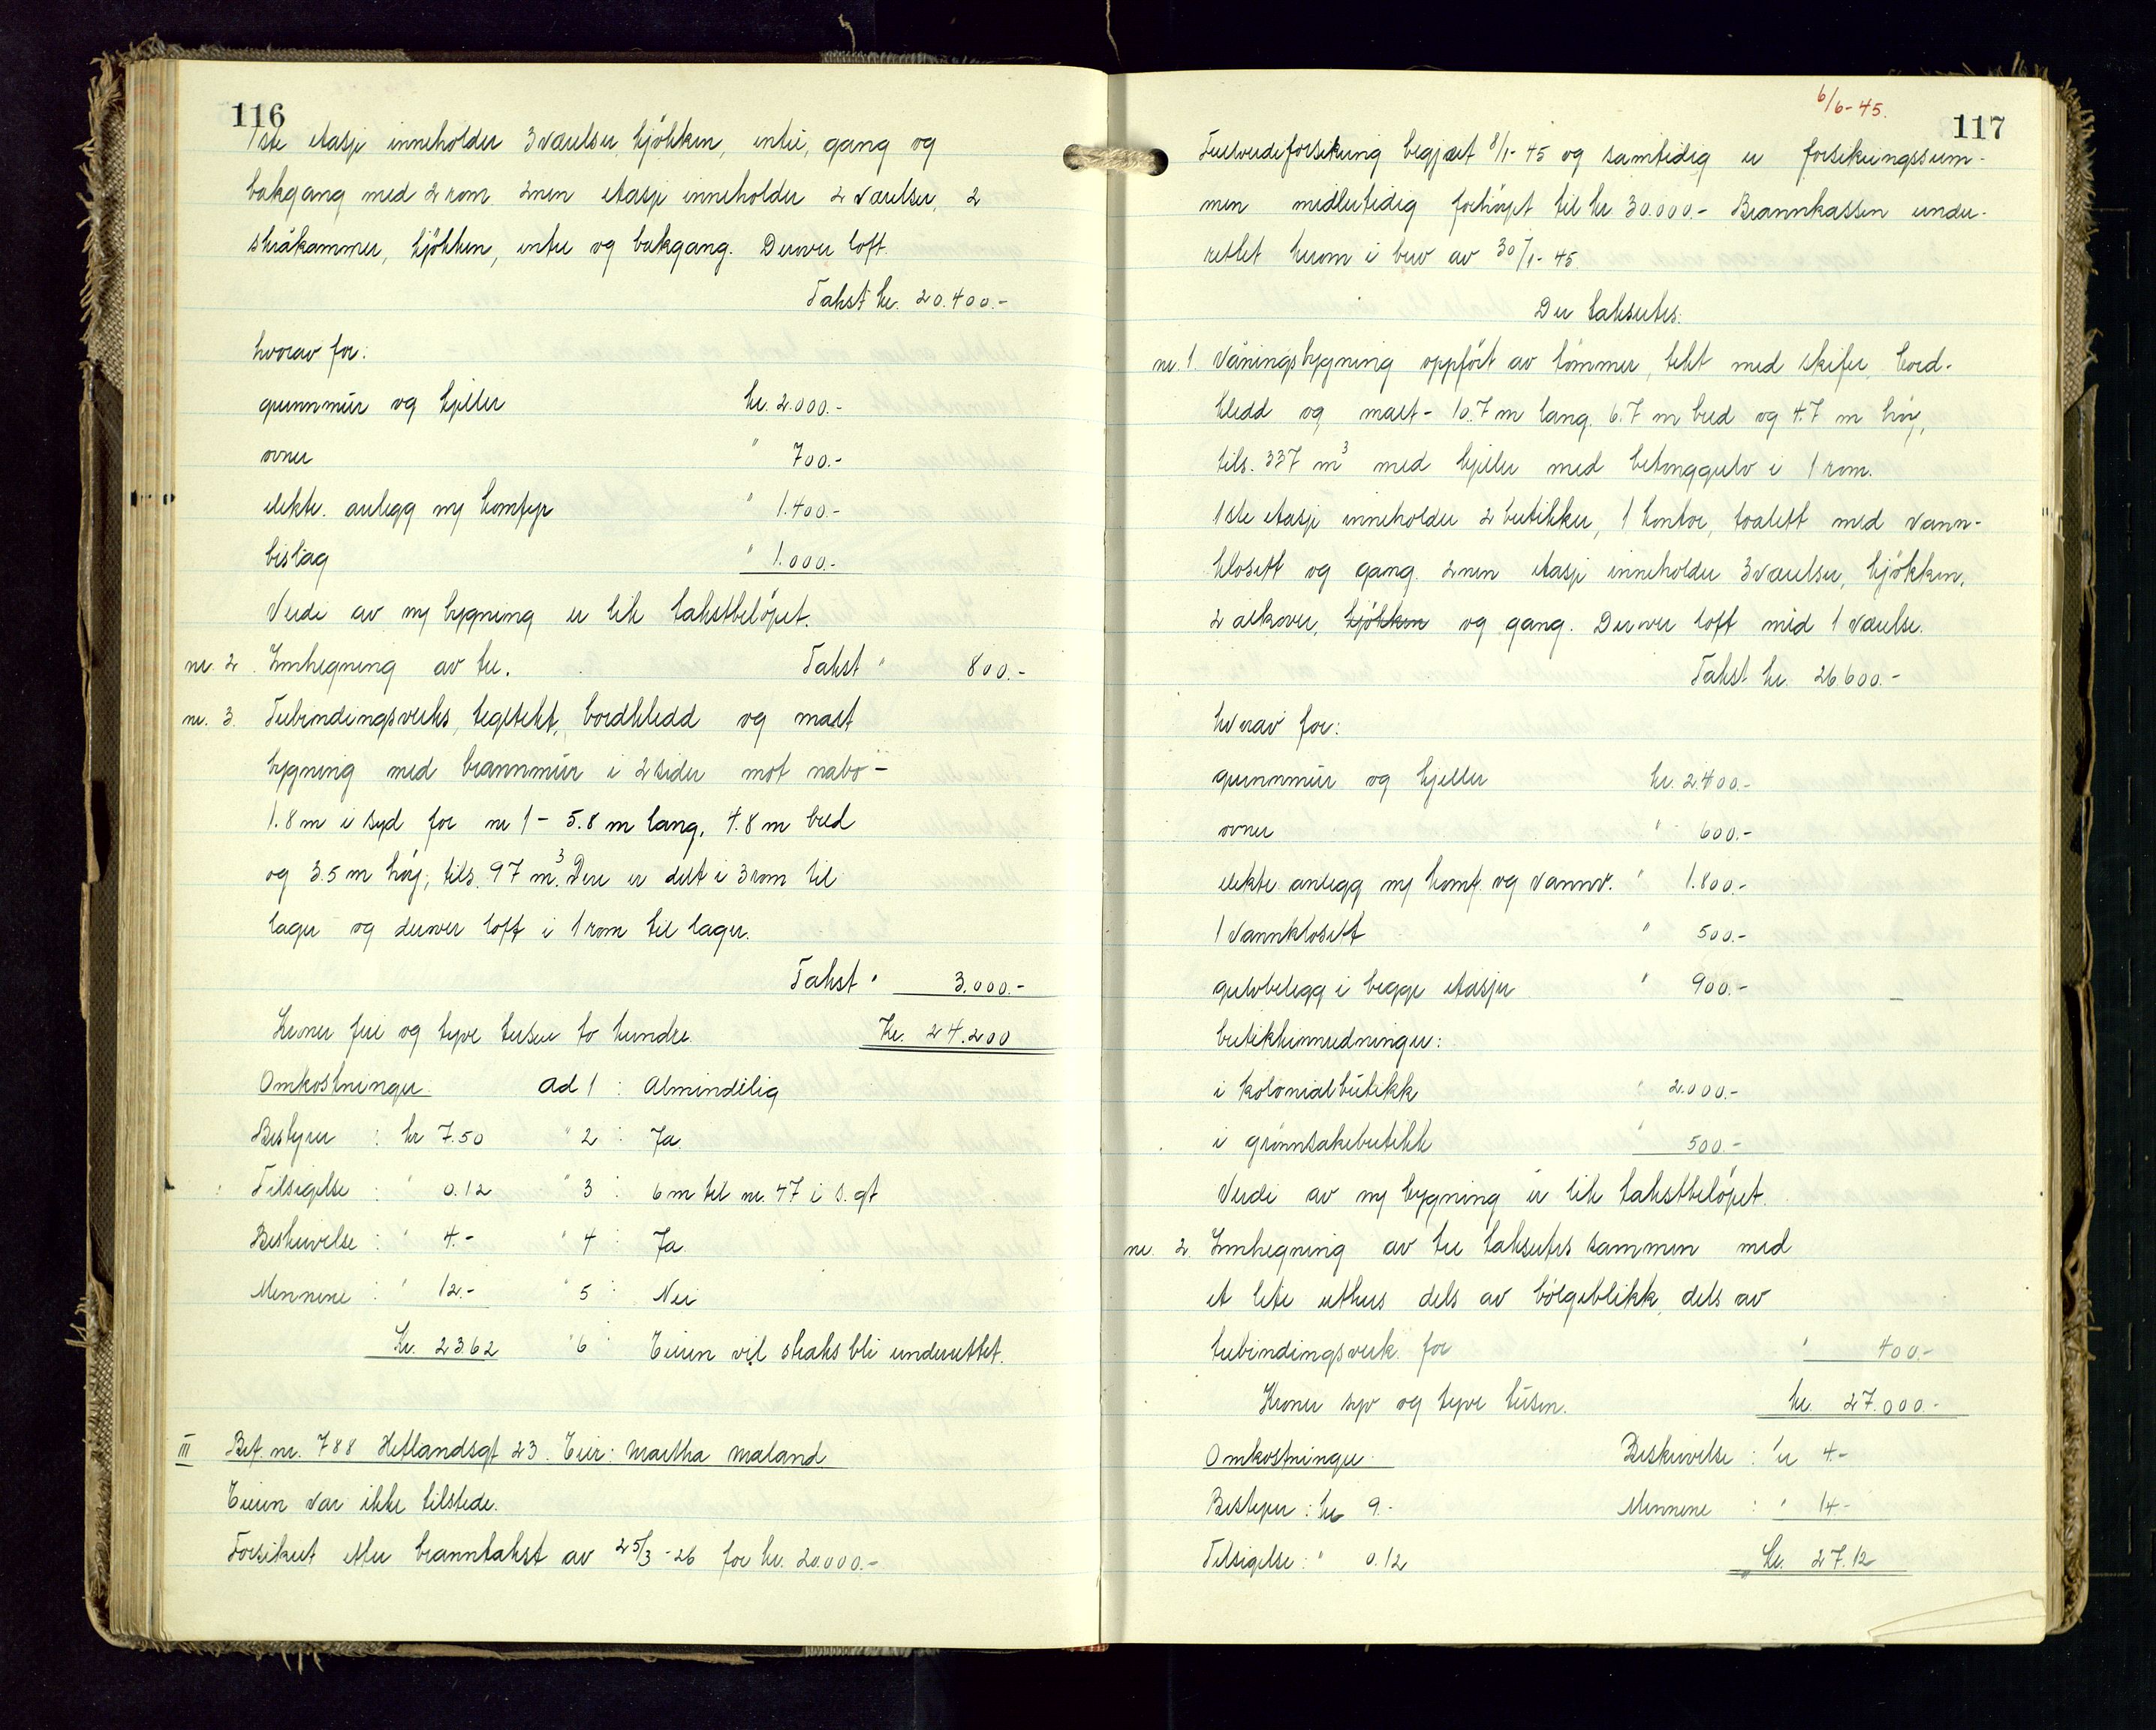 116
1ste etasje inneholder 3 værelser, kjökken, entré, gang og
bakgang med 2 rom. 2nen etasje inneholder 2 værelser, 2
skråkammer, kjökken, entre og bakgang. Derover loft.
Takst kr. 20.400.-
hvorav for:
grunnmur og kjeller kr. 2.000.-
ovner " 700.-
elektr. anlegg m/ komfyr " 1.400.-
bislag " 1.000.-
Verdi av ny bygning er lik takstbelöpet.
nr. 2. Innhegning av tre. Takst " 800.-
nr. 3. Trebindingsverks, teglstekt, bordkledd og malt
bygning med brannmur i 2 sider mot nabo -
1.8 m i syd for nr 1 - 5.8 m lang, 4.8 m bred
og 3.5 m höy, tils. 97 m³. Den er delt i 3 rom til
lager og derover loft i 1 rom til lager.
Takst " 3.000.-
Kroner fire og tyve tusen to hundre. Kr. 24.200
Omkostninger Ad 1 : Almindelig
Bestyrer : kr 7.50 " 2 : Ja.
Tilsigelse : " 0.12 " 3 : 6 m til nr. 47 i s. gt
Beskrivelse : " 4.- " 4 : Ja
Mennene : " 12.- " 5 : Nei
Kr. 23.62 " 6 : Eieren vil straks bli underrettet.
III Brt. nr. 788 Hetlandsgt 23. Eier: Martha Maland
Eieren var ikke tilstede.
Forsikret etter branntakst av 25/3-26 for kr. 20.000.-
6/6-45.
117
Fullverdiforsikring begjært 8/1-45 og samtidig er forsikringssum-
men midlertidig forhöyet til kr 30.000.- Brannkassen under-
rettet herom i brev av 30/1-45.
Der takseres:
nr. 1. Våningsbygning oppfört av tömmer, tekt med skifer, bord-
kledd og malt - 10.7 m lang, 6.7 m bred og 4.7 m höy,
tils. 337 m³ med kjeller med betonggulv i 1 rom.
1ste etasje inneholder 2 butikker, 1 kontor, toalett med vann-
klosett og gang. 2nen etasje inneholder 3 værelser, kjökken,
2 alkover, kjökken og gang. Derover loft med 1 værelse.
Takst kr. 26.600.-
hvorav for:
grunnmur og kjeller kr. 2.400.-
ovner " 600.-
elektr. anlegg m/ komf. og vannv. " 1.800.-
1 vannklosett " 500.-
gulvbelegg i begge etasjer " 900.-
butikkinnredninger:
i kolonialbutikk " 2.000.-
i grönnsakebutikk " 500.-
Verdi av ny bygning er lik takstbelöpet.
nr. 2. Innhegning av tre takseres sammen med
et lite uthus dels av bölgeblikk, dels av
trebindingsverk for " 400.-
Kroner syv og tyve tusen. kr. 27.000.-
Omkostninger Beskrivelse : kr 4.-
Bestyrer : kr 9.- Mennene : " 14.-
Tilsigelse : " 0.12 Kr. 27.12